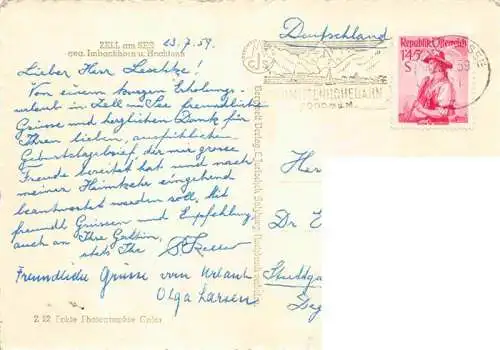 ZELL am SEE
geg. Imbachhorn u. Hochtenn
23.7.59.
Lieber Herr Leschke!
Von einem kurzen Erholungs-
urlaub in Zell am See freundliche
Grüsse und herzlichen Dank für
Ihren lieben, ausführlichen
Geburtstagsbrief der mir grosse
Freude bereitet hat und nach
meiner Heimkehr eingehend
beantwortet werden soll. Mit
freundl Grüssen und Empfehlung
auch an Ihre Gattin,
stets Ihr
Freundliche Grüsse vom Urlaub
Olga Larsen
Z 22 Echte Photographie Color
Deutschland
SCHMITTENHÖHEBAHN
2000 m
Republik Österreich
1.45
S
59
Her
Dr
Stuttga